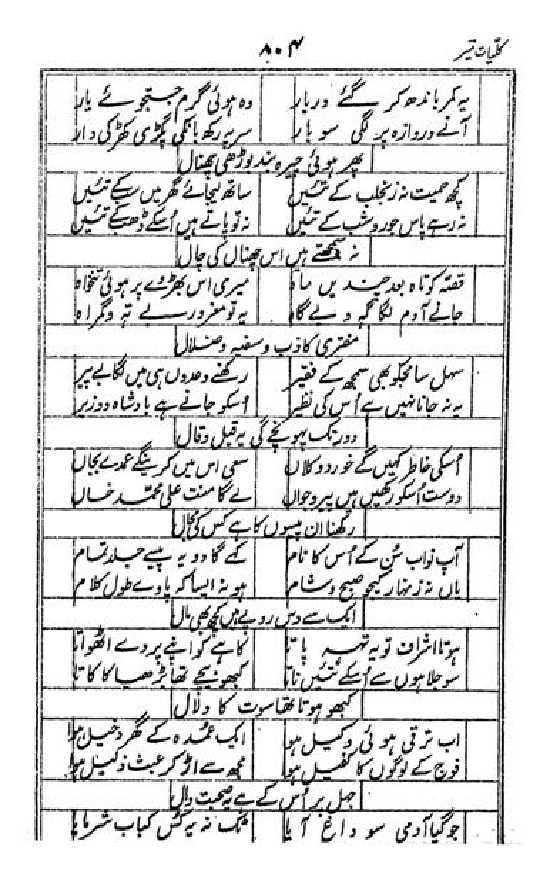 کلیات میر
۸۰۴
یہ کمر باندھ کر گئے دربار وہ ہوئی گرم جستجوئے یار
آنے دروازہ پر لگی سو بار سر پہ رکھ بانکی پگڑی کھڑکی دار
پھر ہوئی چیرہ بند وڑھی چھنال
کچھ حمیت نہ زنجلب کے تئیں ساتھ لیجائے گھر میں سب کے تئیں
نہ رہے پاس جورو شب کے تئیں نہ تو پاتے ہیں اُسکے ڈھب کے تئیں
نہ سمجھتے ہیں اس چھنال کی چال
قصّہ کوتاہ بعد چندیں ماہ میری اس بھڑوے پر ہوئی تنخواہ
جانے آدم لگا گہ و بے گاہ یہ تو مغرور بے تہ و گمراہ
مفتری کاذب و سفیہ و ضلال
سہل سا مجکو بھی سمجھ کے فقیر رکھنے وعدوں ہی میں لگا بے پیر
یہ نہ جانا نہیں ہے اُس کی نظیر اُسکو جانے ہے بادشاہ و وزیر
دور تک پہونچے گی یہ قیل و قال
اُسکی خاطر کہیں گے خورد و کلاں سعی اس میں کرینگے عمدے بجاں
دوست اُسکو رکھیں ہیں پیر و جواں لے گا منت علی محمّد خاں
رکھنا ان پیسوں کا ہے کس کی مجال
آپ نواب سُن کے اُس کا نام کہے گا دو یہ پیسے جلد تمام
ہاں نہ زنہار کیجو صبح و شام ہو نہ ایسا کہ پاوے طول کلام
ایک سے دس روپے ہیں کچھ بھی مال
ہوتا اشراف تو یہ تہہ پاتا کاہے کو اپنے پردے اٹھواتا
سو جلاہوں سے اُسکے تئیں ناتا کبھو نیچے تھا بڑھیا کا کاتا
کبھو ہوتا تھا سوت کا دلال
اب ترقی ہوئی وکیل ہوا ایک عُمدہ کے گھر دخیل ہوا
فوج کے لوگوں کا کفیل ہوا مجھ سے اڑ کر عبث ذلیل ہوا
جہل پر اُس کے ہے یہ صحبت دال
جو گیا آدمی سو داغ آیا نہ یہ کس کباب شرمایا